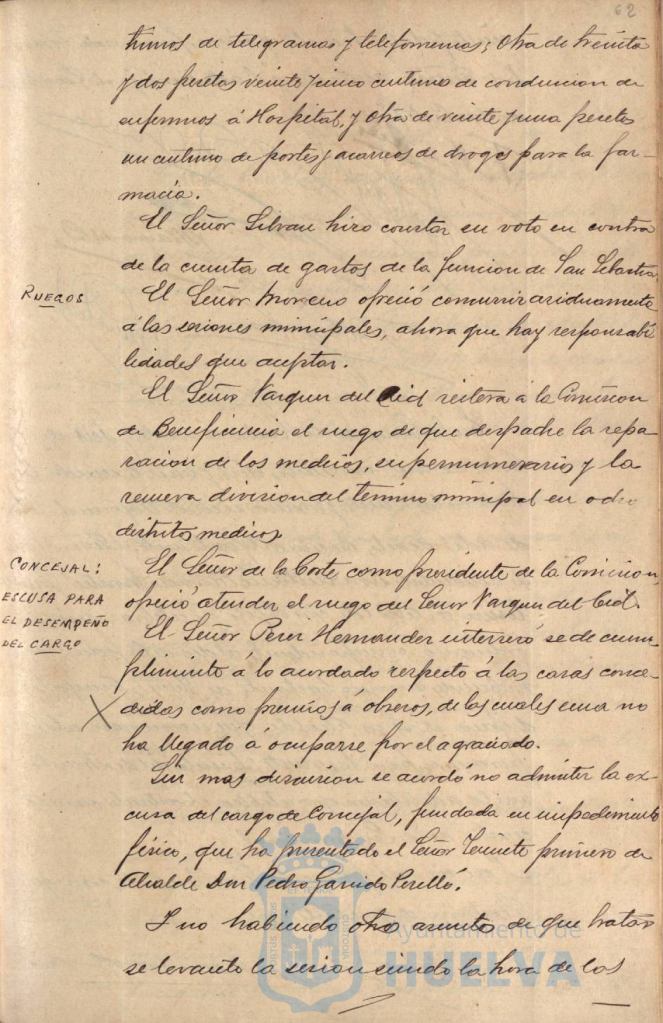 62
timos de telegramas y telefonemas; otra de treinta
y dos pesetas veinte y cinco centimos de conduccion de
enfermos á Hospital, y otra de veinte y una pesetas
un centimo de portes y acarreos de drogas para la far-
macia.
El Señor Silvan hizo constar su voto en contra
de la cuenta de gastos de la funcion de San Sebastian.
RUEGOS
El Señor Moreno ofreció concurrir asiduamente
á las sesiones municipales, ahora que hay responsabi
lidades que aceptar.
El Señor Vazquez del Cid reitera á la Comision
de Beneficencia el ruego de que despache la repa
racion de los medicos, supernumerarios y la
nueva division del termino municipal en ocho
distritos medicos
CONCEJAL:
ESCUSA PARA
EL DESEMPEÑO
DEL CARGO
El Señor de la Corte como presidente de la Comision,
ofreció atender el ruego del Señor Vazquez del Cid.
El Señor Perez Hernandez interesó se dé cum-
plimiento á lo acordado respecto á las casas conce-
didas como premios á obreros, de las cuales una no
ha llegado á ocuparse por el agraciado.
Sin mas discusion se acordó no admitir la ex-
cusa del cargo de Concejal, fundada en impedimento
fisico, que ha presentado el Señor Teniente primero de
Alcalde Don Pedro Garrido Perelló.
Y no habiendo otro asunto de que tratar
se levantó la sesion siendo la hora de las
Ayuntamiento de
HUELVA